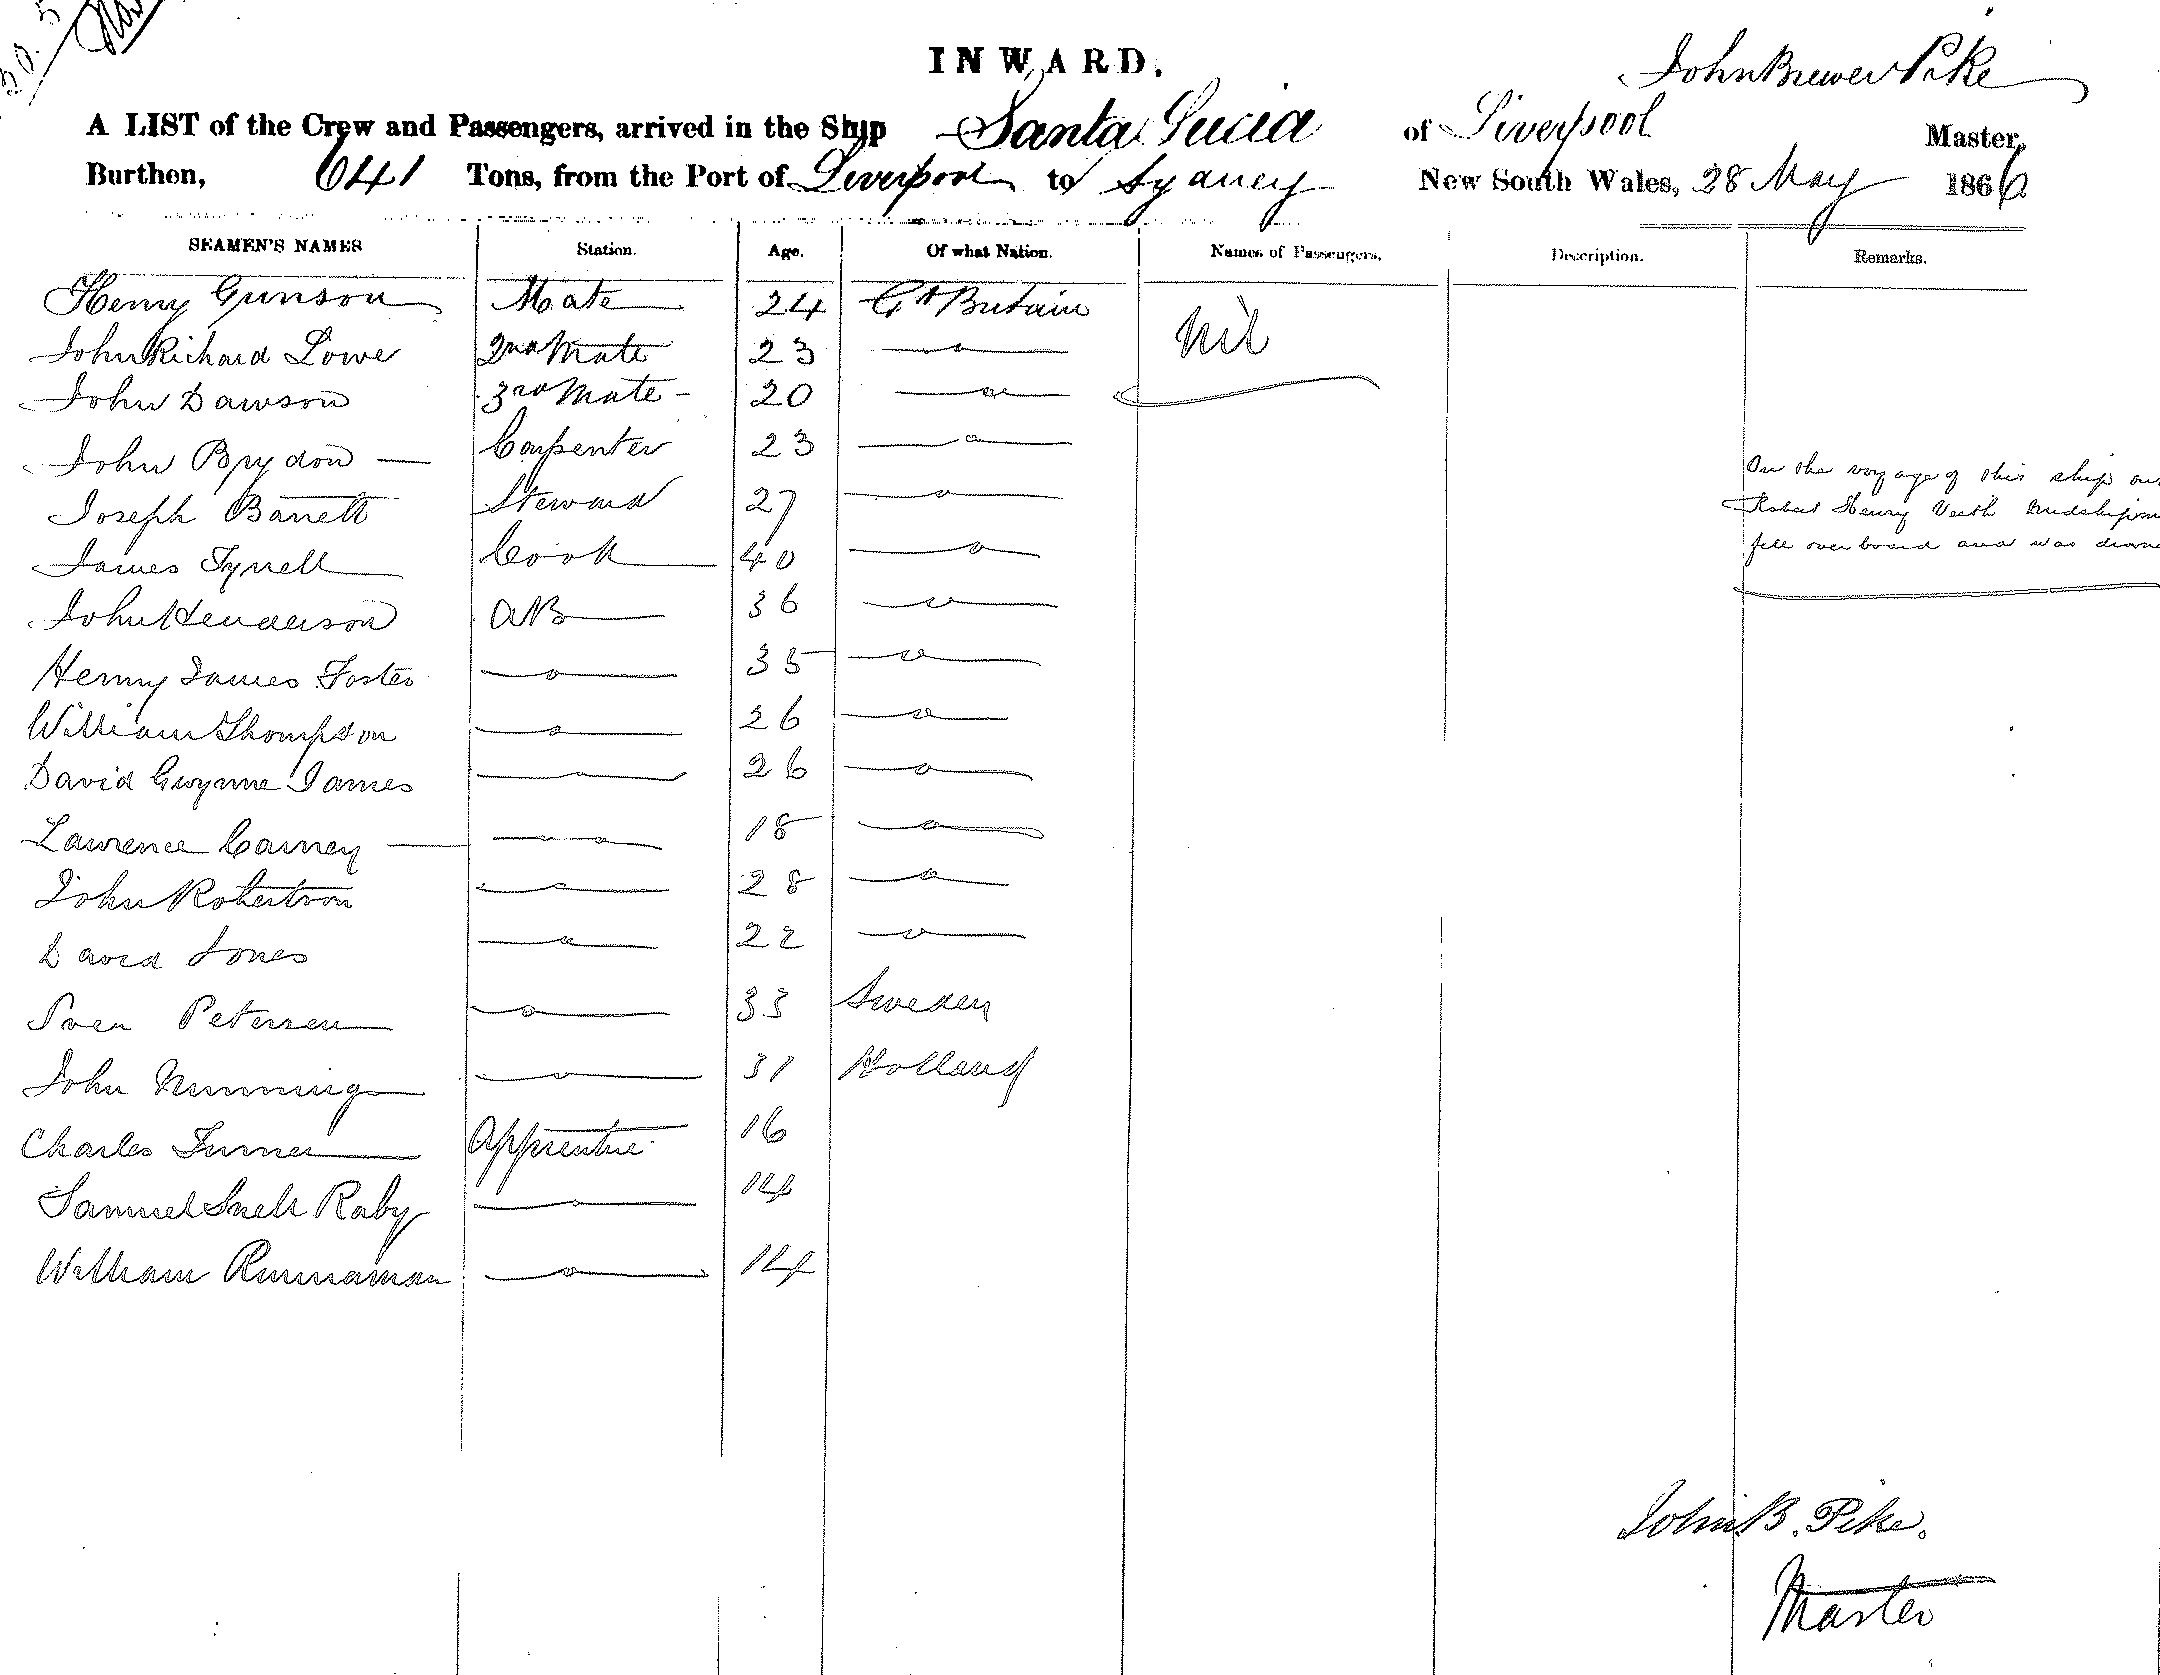 30. 5
INWARD.
John Brewer Pike
A LIST of the Crew and Passengers, arrived in the Ship Santa Lucia of Liverpool Master,
Burthen, 641 Tons, from the Port of Liverpool to Sydney New South Wales, 28 May 1866
SEAMEN'S NAMES Station. Age. Of what Nation. Names of Passengers. Description. Remarks.
Henry Gunson Mate 24 Gt Britain Nil
John Richard Lowe 2nd Mate 23 —o—
John Dawson 3rd Mate - 20 —o—
John Brydon — Carpenter 23 —o—
On the voyage of this ship
Joseph Barrett Steward 27 —o—
Robert Henry Veith
James Tyrrell Cook 40 —o—
fell overboard and was
John Henderson AB 36 —o—
Henry James Foster —o— 35 —o—
William Thompson —o— 26 —o—
David Gwynne James —o— 26 —o—
Lawrence Carney —o— 18 —o—
John Robertson —o— 28 —o—
David Jones —o— 22 —o—
Sven Petersen —o— 33 Sweden
John —o— 31 Holland
Charles Turner Apprentice 16
Samuel Snell Raby —o— 14
William —o— 14
John B. Pike.
Master